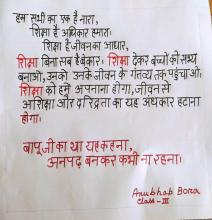 हम सभी का एक है नारा,
शिक्षा है अधिकार हमारा।
शिक्षा है जीवन का आधार,
शिक्षा बिना सब है बेकार। शिक्षा देकर बच्चों को सभ्य
बनाओ, उनको उनके जीवन के गंतव्य तक पहुंचाओ।
शिक्षा को हमें अपनाना होगा, जीवन से
अशिक्षा और दरिद्रता का यह अंधकार हटाना
होगा।
बापू जी का था यह कहना,
अनपढ़ बनकर कभी ना रहना।
Anubhab Bora
Class - III